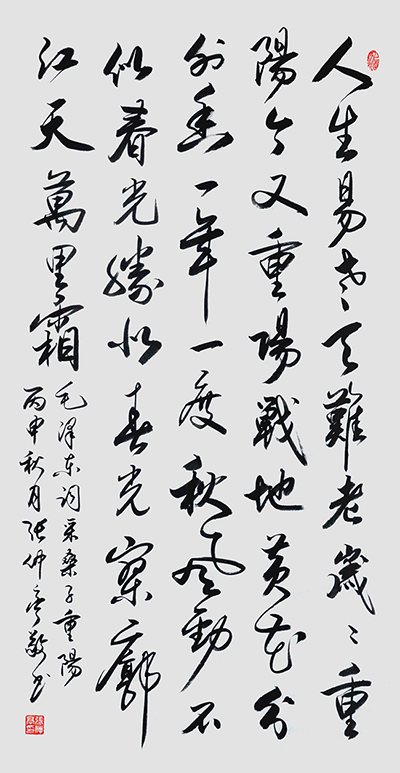 人生易老天難老歲〻重
陽今又重陽戰地黃花分
外香一年一度秋風勁不
似春光勝似春光寥廓
江天萬里霜
毛澤东词采桑子重陽
丙申秋月张仲亭敬书